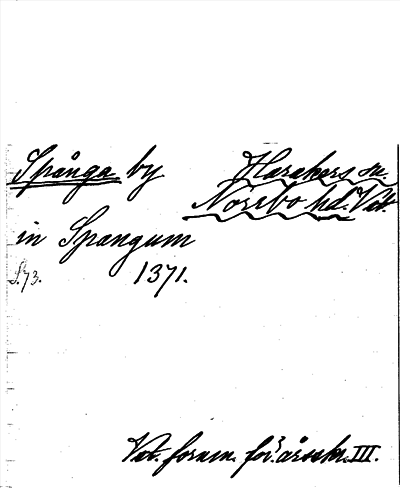 Spånga by Harakers sn.
Norrbo hd. Vstl.
in Spangum
S. 73. 1371.
Vst. fornm. för:s årsskr. III.